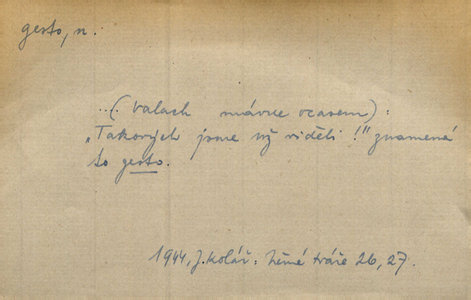 gesto, n.
...( Valach mávne ocasem):
„Takových jsme už viděli!" znamená
to gesto.
1944, J. Kolář: Němé tváře 26, 27.